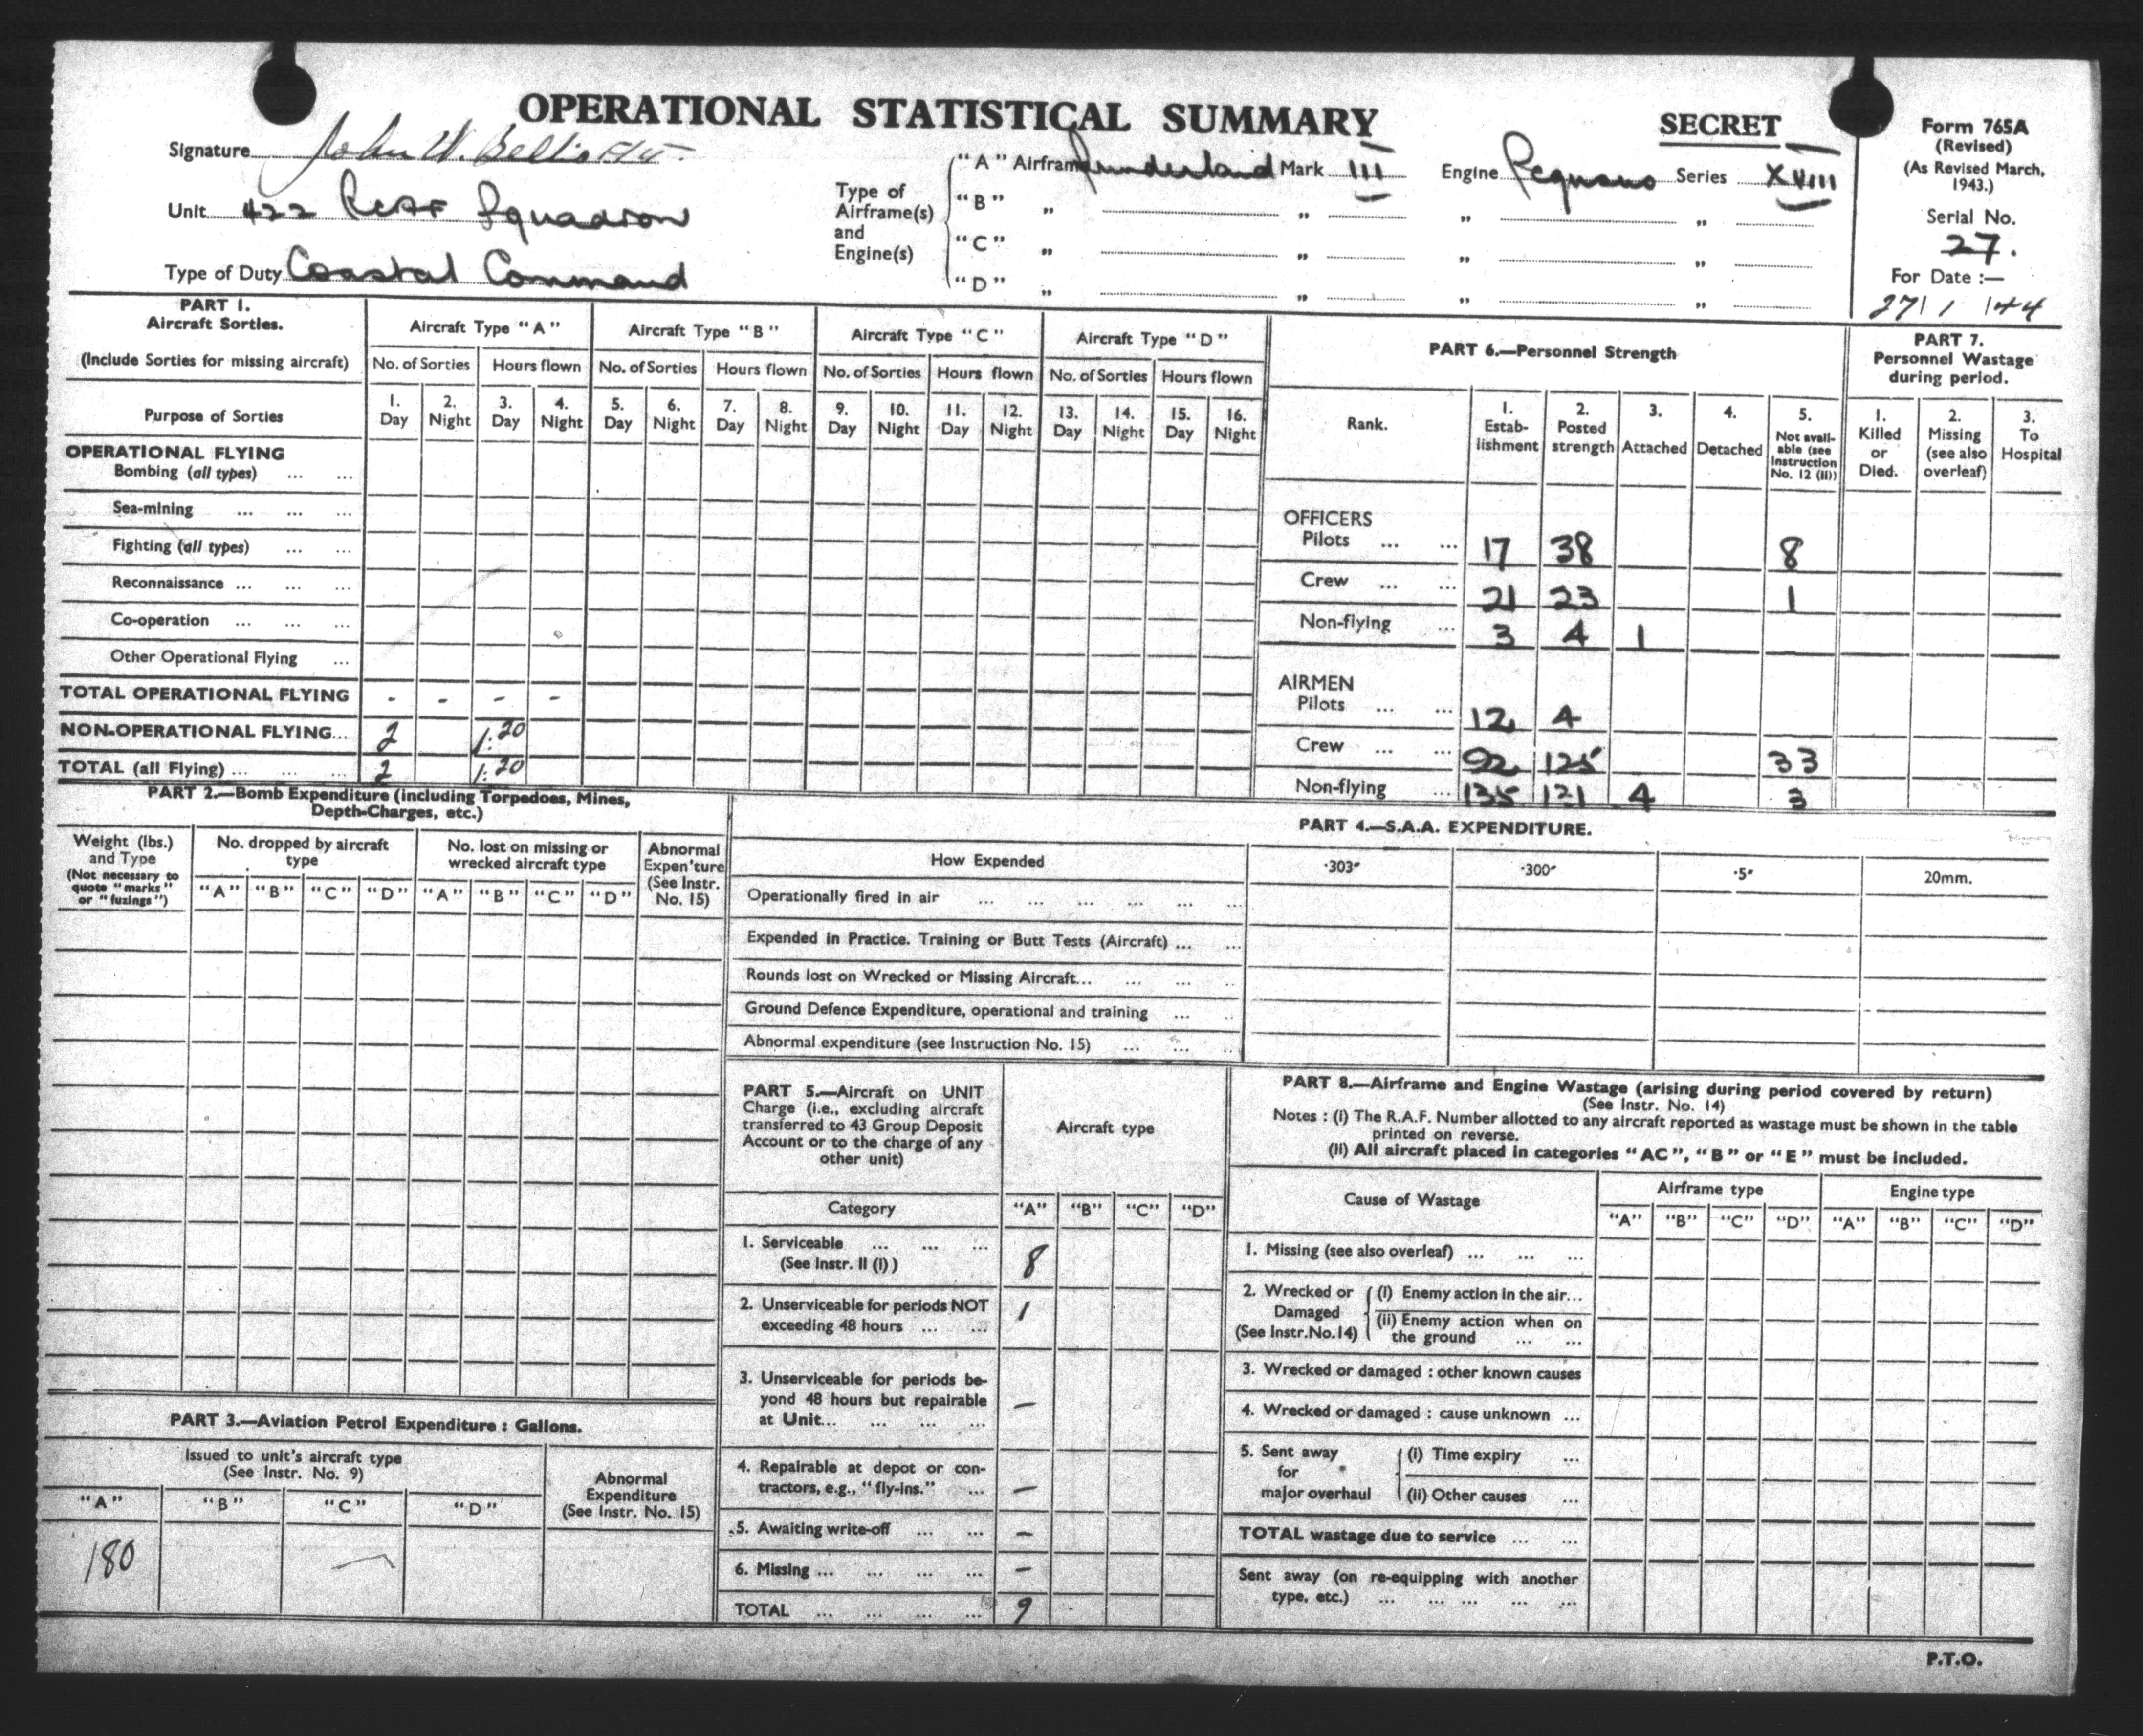 OPERATIONAL STATISTICAL SUMMARY
SECRET
Form 765A
(Revised)
(As Revised March,
1943.)
Serial No.
27.
For Date :—
27 / 1 / 44
Signature John W.
Unit 422 RCAF Squadron
Type of Duty Coastal Command
Type of
Airframe(s)
and
Engine(s)
"A" Airframe Sunderland Mark III Engine Pegasus Series XVIII
"B" " " " "
"C" " " " "
"D" " " " "
PART 1.
Aircraft Sorties.
(Include Sorties for missing aircraft)
Purpose of Sorties
Aircraft Type "A" Aircraft Type "B" Aircraft Type "C" Aircraft Type "D"
No. of Sorties Hours flown No. of Sorties Hours flown No. of Sorties Hours flown No. of Sorties Hours flown
1. 2. 3. 4. 5. 6. 7. 8. 9. 10. 11. 12. 13. 14. 15. 16.
Day Night Day Night Day Night Day Night Day Night Day Night Day Night Day Night
OPERATIONAL FLYING
Bombing (all types) ... ...
Sea-mining ... ... ...
Fighting (all types) ... ...
Reconnaissance ... ... ...
Co-operation ... ... ...
Other Operational Flying ...
TOTAL OPERATIONAL FLYING - - - -
NON-OPERATIONAL FLYING... 2 1:20
TOTAL (all Flying) ... ... ... 2 1:20
PART 6.—Personnel Strength
Rank.
1.
Estab-
lishment
2.
Posted
strength
3.
Attached
4.
Detached
5.
Not avail-
able (see
Instruction
No. 12 (ii))
OFFICERS
Pilots ... ... 17 38 8
Crew ... ... 21 23 1
Non-flying ... 3 4 1
AIRMEN
Pilots ... ... 12 4
Crew ... ... 92 125 33
Non-flying ... 135 121 4 3
PART 7.
Personnel Wastage
during period.
1.
Killed
or
Died.
2.
Missing
(see also
overleaf)
3.
To
Hospital
PART 2.—Bomb Expenditure (including Torpedoes, Mines,
Depth-Charges, etc.)
Weight (lbs.)
and Type
(Not necessary to
quote "marks"
or "fuzings")
No. dropped by aircraft
type
No. lost on missing or
wrecked aircraft type
Abnormal
Expen'ture
(See Instr.
No. 15)
"A" "B" "C" "D" "A" "B" "C" "D"
PART 4.—S.A.A. EXPENDITURE.
How Expended ·303" ·300" ·5" 20mm.
Operationally fired in air ... ... ... ... ... ...
Expended in Practice. Training or Butt Tests (Aircraft) ... ...
Rounds lost on Wrecked or Missing Aircraft... ... ... ..
Ground Defence Expenditure, operational and training ... ..
Abnormal expenditure (see Instruction No. 15) ... ... ..
PART 3.—Aviation Petrol Expenditure : Gallons.
Issued to unit's aircraft type
(See Instr. No. 9)
Abnormal
Expenditure
(See Instr. No. 15)
"A" "B" "C" "D"
180
PART 5.—Aircraft on UNIT
Charge (i.e., excluding aircraft
transferred to 43 Group Deposit
Account or to the charge of any
other unit)
Aircraft type
Category "A" "B" "C" "D"
1. Serviceable ... ... ...
(See Instr. II (i) ) 8
2. Unserviceable for periods NOT
exceeding 48 hours ... ... 1
3. Unserviceable for periods be-
yond 48 hours but repairable
at Unit... ... ... ... —
4. Repairable at depot or con-
tractors, e.g., "fly-ins." ... —
5. Awaiting write-off ... ... —
6. Missing ... ... ... ... —
TOTAL ... ... ... ... 9
PART 8.—Airframe and Engine Wastage (arising during period covered by return)
(See Instr. No. 14)
Notes : (i) The R.A.F. Number allotted to any aircraft reported as wastage must be shown in the table
printed on reverse.
(ii) All aircraft placed in categories "AC", "B" or "E" must be included.
Cause of Wastage Airframe type Engine type
"A" "B" "C" "D" "A" "B" "C" "D"
1. Missing (see also overleaf) ... ... ...
2. Wrecked or
Damaged
(See Instr.No.14)
(i) Enemy action in the air...
(ii) Enemy action when on
the ground ... ...
3. Wrecked or damaged : other known causes
4. Wrecked or damaged : cause unknown ...
5. Sent away
for
major overhaul
(i) Time expiry ...
(ii) Other causes ...
TOTAL wastage due to service ... ...
Sent away (on re-equipping with another
type, etc.) ... ... ... ... ...
P.T.O.